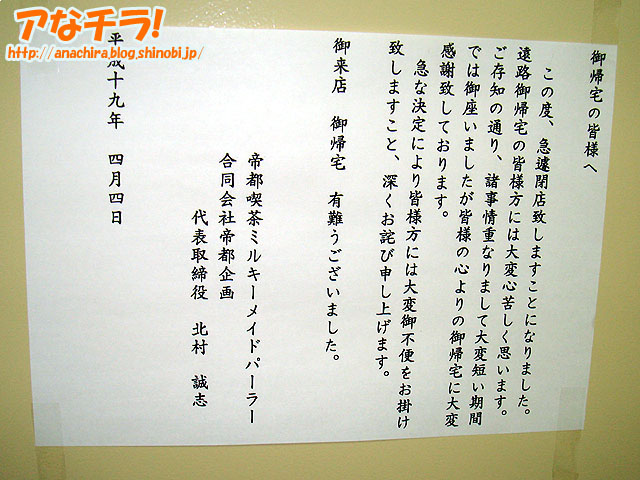 アなチラ!
http://anachira.blog.shinobi.jp/
御帰宅の皆様へ
この度、急遽閉店致しますことになりました。
遠路御帰宅の皆様方には大変心苦しく思います。
ご存知の通り、諸事情重なりまして大変短い期間
では御座いましたが皆様の心よりの御帰宅に大変
感謝致しております。
急な決定により皆様方には大変御不便をお掛け
致しますこと、深くお詫び申し上げます。
御来店 御帰宅 有難うございました。
帝都喫茶ミルキーメイドパーラー
合同会社帝都企画
代表取締役 北村 誠志
平成十九年 四月四日